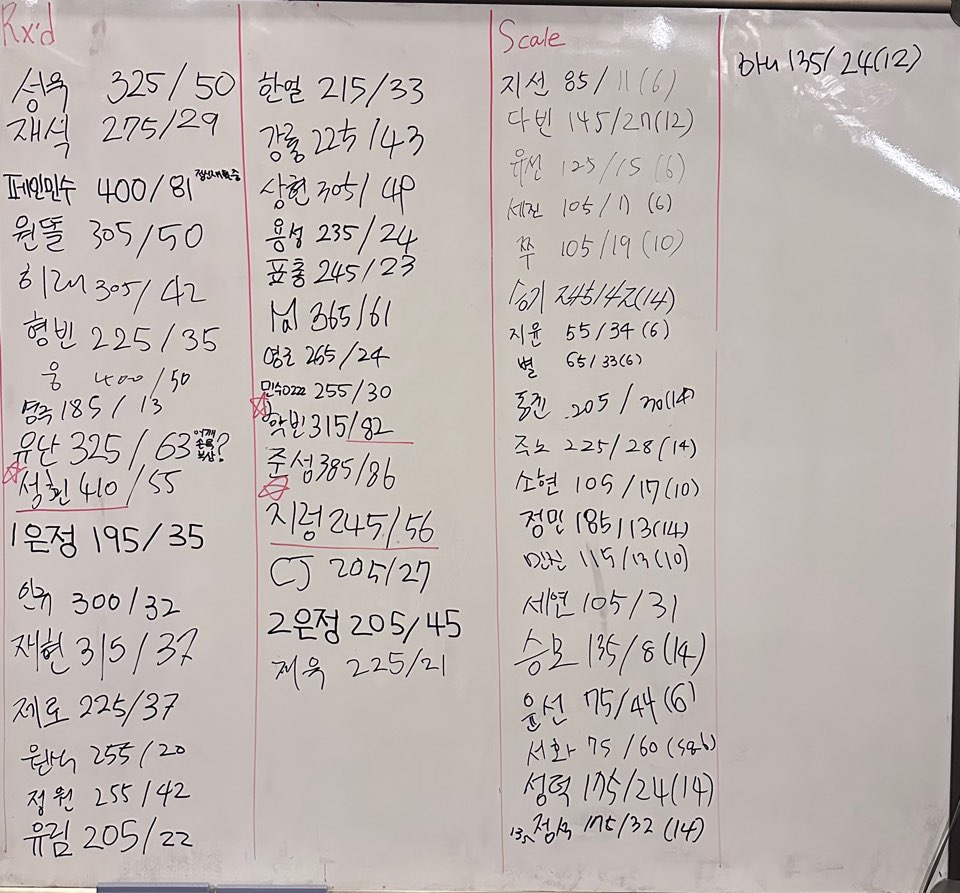 Rx'd
성욱 325/50
재석 275/29
페인민수 400/81
원똘 305/50
히래 305/42
형빈 225/35
웅 400/50
185/13
유단 325/63 어깨 손목 부상?
석훤 410/55
1은정 195/35
인규 300/32
재현 315/37
제로 225/37
255/20
정원 255/42
유림 205/22
한얼 215/33
강룡 225/43
상현 305/49
용성 235/24
표홍 245/23
님 365/61
영근 265/24
민수0222 255/30
학빈 315/82
준성 385/86
지렁 245/56
CJ 205/27
2은정 205/45
제욱 225/21
Scale
지선 85/11(6)
다빈 145/27(12)
유선 125/15(6)
세진 105/11(6)
쭈 105/19(10)
승기 245/42(14)
지윤 55/34(6)
별 65/33(6)
동진 205/30(14)
주노 225/28(14)
소현 105/17(10)
정민 185/13(14)
민진 115/13(10)
세연 105/31
승모 135/8(14)
윤선 75/44(6)
서화 75/60
성덕 175/24(14)
점석 175/32(14)
하니 135/24(12)